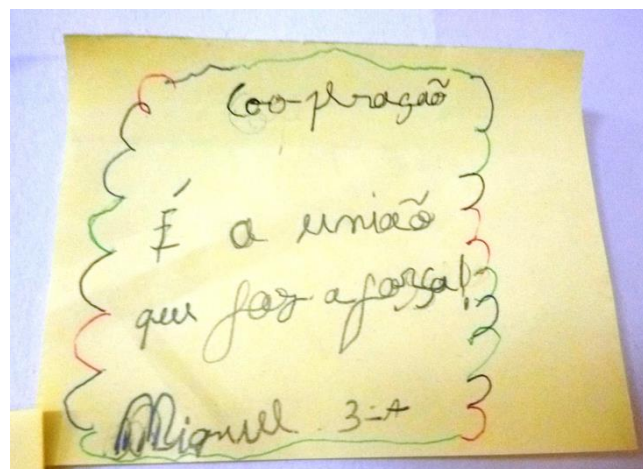 Coo-peração
É a união
que faz a força!
Miguel 3-A